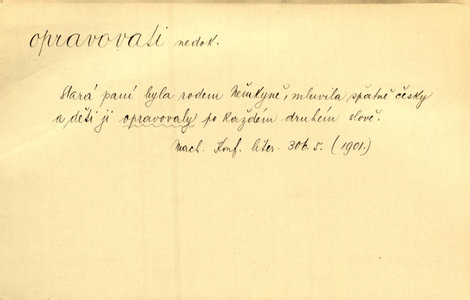 opravovati nedok.
Stará paní byla rodem Němkyně, mluvila špatně česky
a děti ji opravovaly po každém druhém slově.
Mach. Konf. liter. 306. s. (1901.)